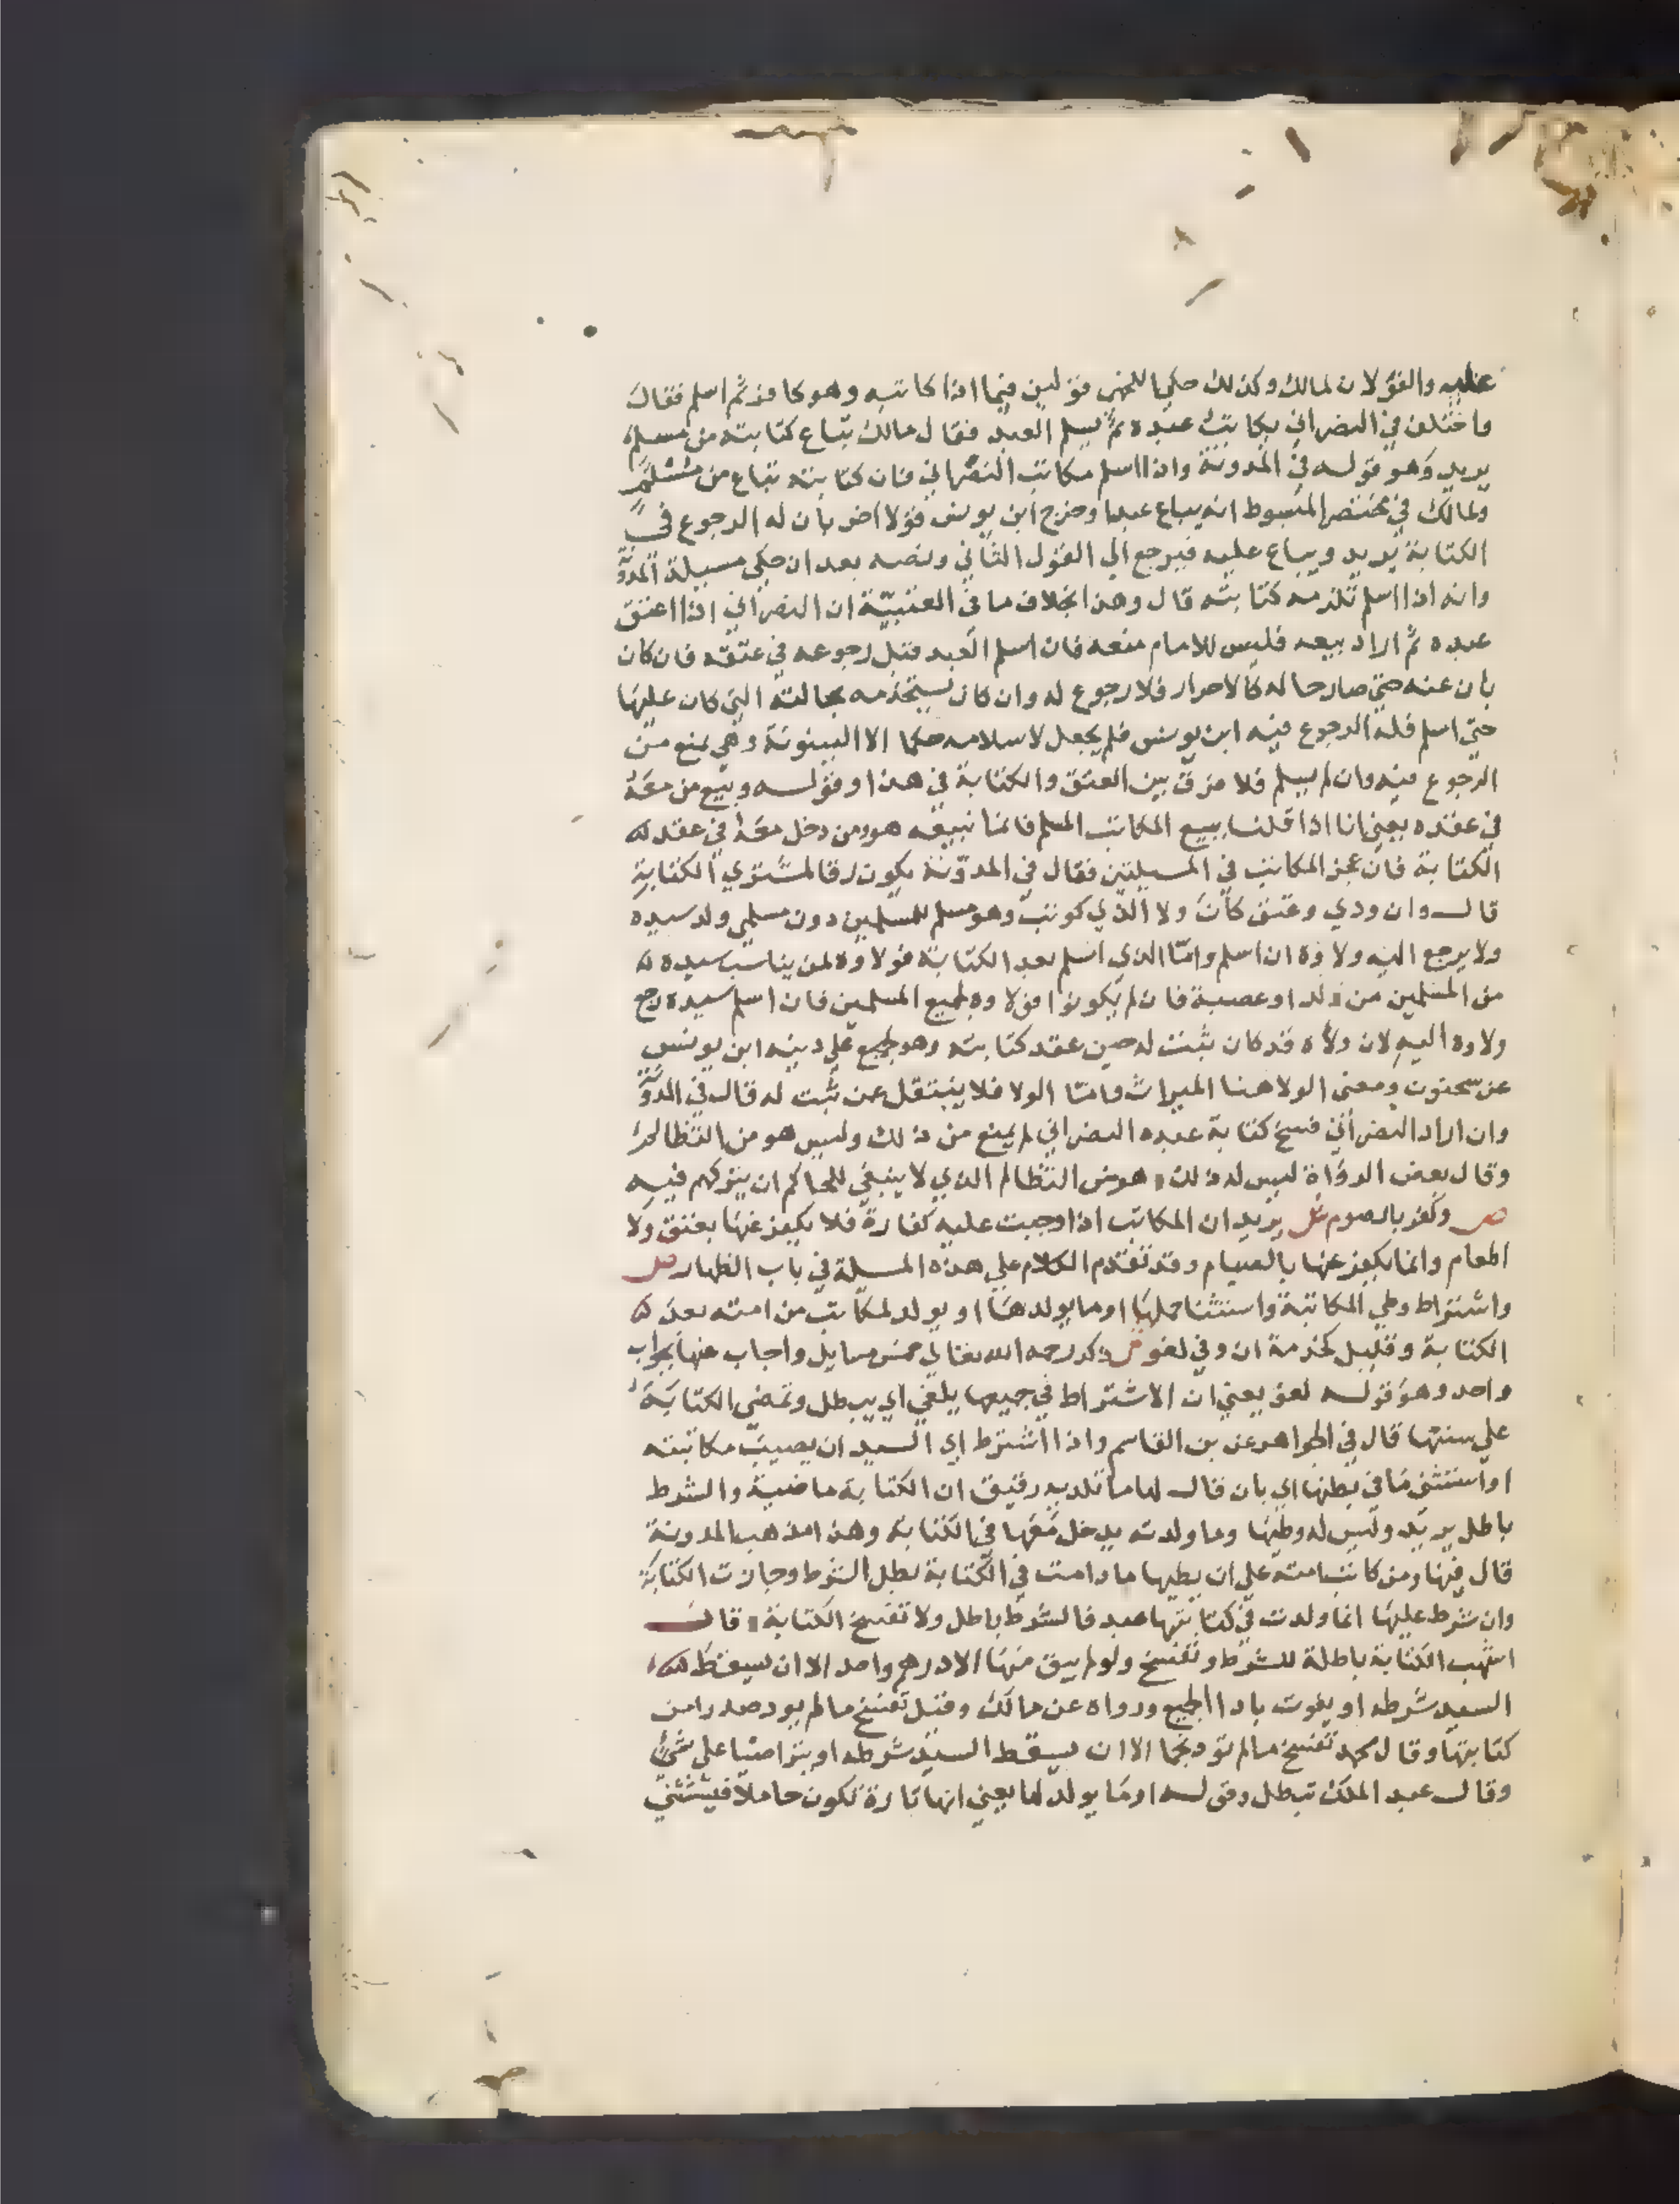 عليه والقولان لمالك وكذلك حكي اللخمي قولين فيما اذا كاتبه وهو كافر ثم اسلم فقال
واختلف في النصراني يكاتب عبده ثم يسلم العبد فقال مالك تباع كتابته من مسلم
يريد وهو قوله في المدونة واذا اسلم مكاتب النصراني فان كتابته تباع من مسلم
ولمالك في مختصر المبسوط انه يباع عبدا وخرج ابن يونس قولا اخر بان له الرجوع في
الكتابة يريد ويباع عليه فيرجع الي القول الثاني ونصه بعد ان حكي مسيلة المدونة
وانه اذا اسلم تلزمه كتابته قال وهذا بخلاف ما في العتبية ان النصراني اذا اعتق
عبده ثم اراد بيعه فليس للامام منعه فان اسلم العبد قبل رجوعه في عتقه فان كان
بان عنه حتي صار حاله كالاحرار فلا رجوع له وان كان يستخدمه بحالته التي كان عليها
حتي اسلم فله الرجوع فيه ابن يونس فلم يجعل لاسلامه حكما الا البينونة وهي تمنع من
الرجوع فيه وان لم يسلم فلا فرق بين العتق والكتابة في هذا وقوله وبيع من معه
في عقده يعني انا اذا قلنا ببيع المكاتب المسلم فانما نبيعه هو ومن دخل معه في عقد
الكتابة فان عجز المكاتب في المسيلتين فقال في المدونة يكون رقا لمشتري الكتابة
قال وان ودي وعتق كان ولا الذي كوتب وهو مسلم للمسلمين دون مسلمي ولد سيده
ولا يرجع اليه ولاوه ان اسلم واما الذي اسلم بعد الكتابة فولاوه لمن يناسب سيده
من المسلمين من ولد او عصبة فان لم يكونوا فولاوه لجميع المسلمين فان اسلم سيده رجع
ولاوه اليه لان ولاه قد كان ثبت له حين عقد كتابته وهو علي دينه ابن يونس
عن سحنون ومعني الولا هنا الميراث واما الولا فلا ينتقل عن ثبت له قال في المدونة
وان اراد النصراني فسخ كتابة عبده النصراني لم يمنع من ذلك وليس هو من التظالم
وقال بعض الرواة ليس له ذلك وهو من التظالم الذي لا ينبغي للحاكم ان يتركهم فيه
ص وكفر بالصوم ش يريد ان المكاتب اذا وجبت عليه كفارة فلا يكفر عنها بعتق ولا
اطعام وانما يكفر عنها بالصيام وقد تقدم الكلام علي هذه المسيلة في باب الظهار ص
واشتراط وطي المكاتبة واستثنا حملها او ما يولد لها او يولد لمكاتب من امته بعد
الكتابة وقليل كخدمة ان وفي لغو ش ذكر رحمه الله تعالي خمس مسايل واجاب عنها بجواب
واحد وهو قوله لغو يعني ان الاشتراط في جميعها يلغي اي يبطل وتمضي الكتابة
علي سنتها قال في الجواهر عن بن القاسم واذا اشترط اي السيد ان يصيب مكاتبته
او استثني ما في بطنها اي بان قال لها ما تلديه رقيق ان الكتابة ماضية والشرط
باطل يريد وليس له وطيها وما ولدته يدخل معها في الكتابة وهذا مذهب المدونة
قال فيها ومن كاتب امته علي ان يطيها ما دامت في الكتابة بطل الشرط وجازت الكتابة
وان شرط عليها انما ولدت في كتابتها عبد فالشرط باطل ولا تفسخ الكتابة وقال
اشهب الكتابة باطلة للشرط وتفسخ ولو لم يبق منها الا درهم واحد الا ان يسقط
السيد شرطه او يفوت بادا الجميع ورواه عن مالك وقيل تفسخ ما لم يود صدرا من
كتابتها وقال محمد تفسخ ما لم تود نجما الا ان يسقط السيد شرطه او يتراضيا علي شي
وقال عبد الملك تبطل وقوله او ما يولد لها يعني انها تارة تكون حاملا فيستثني